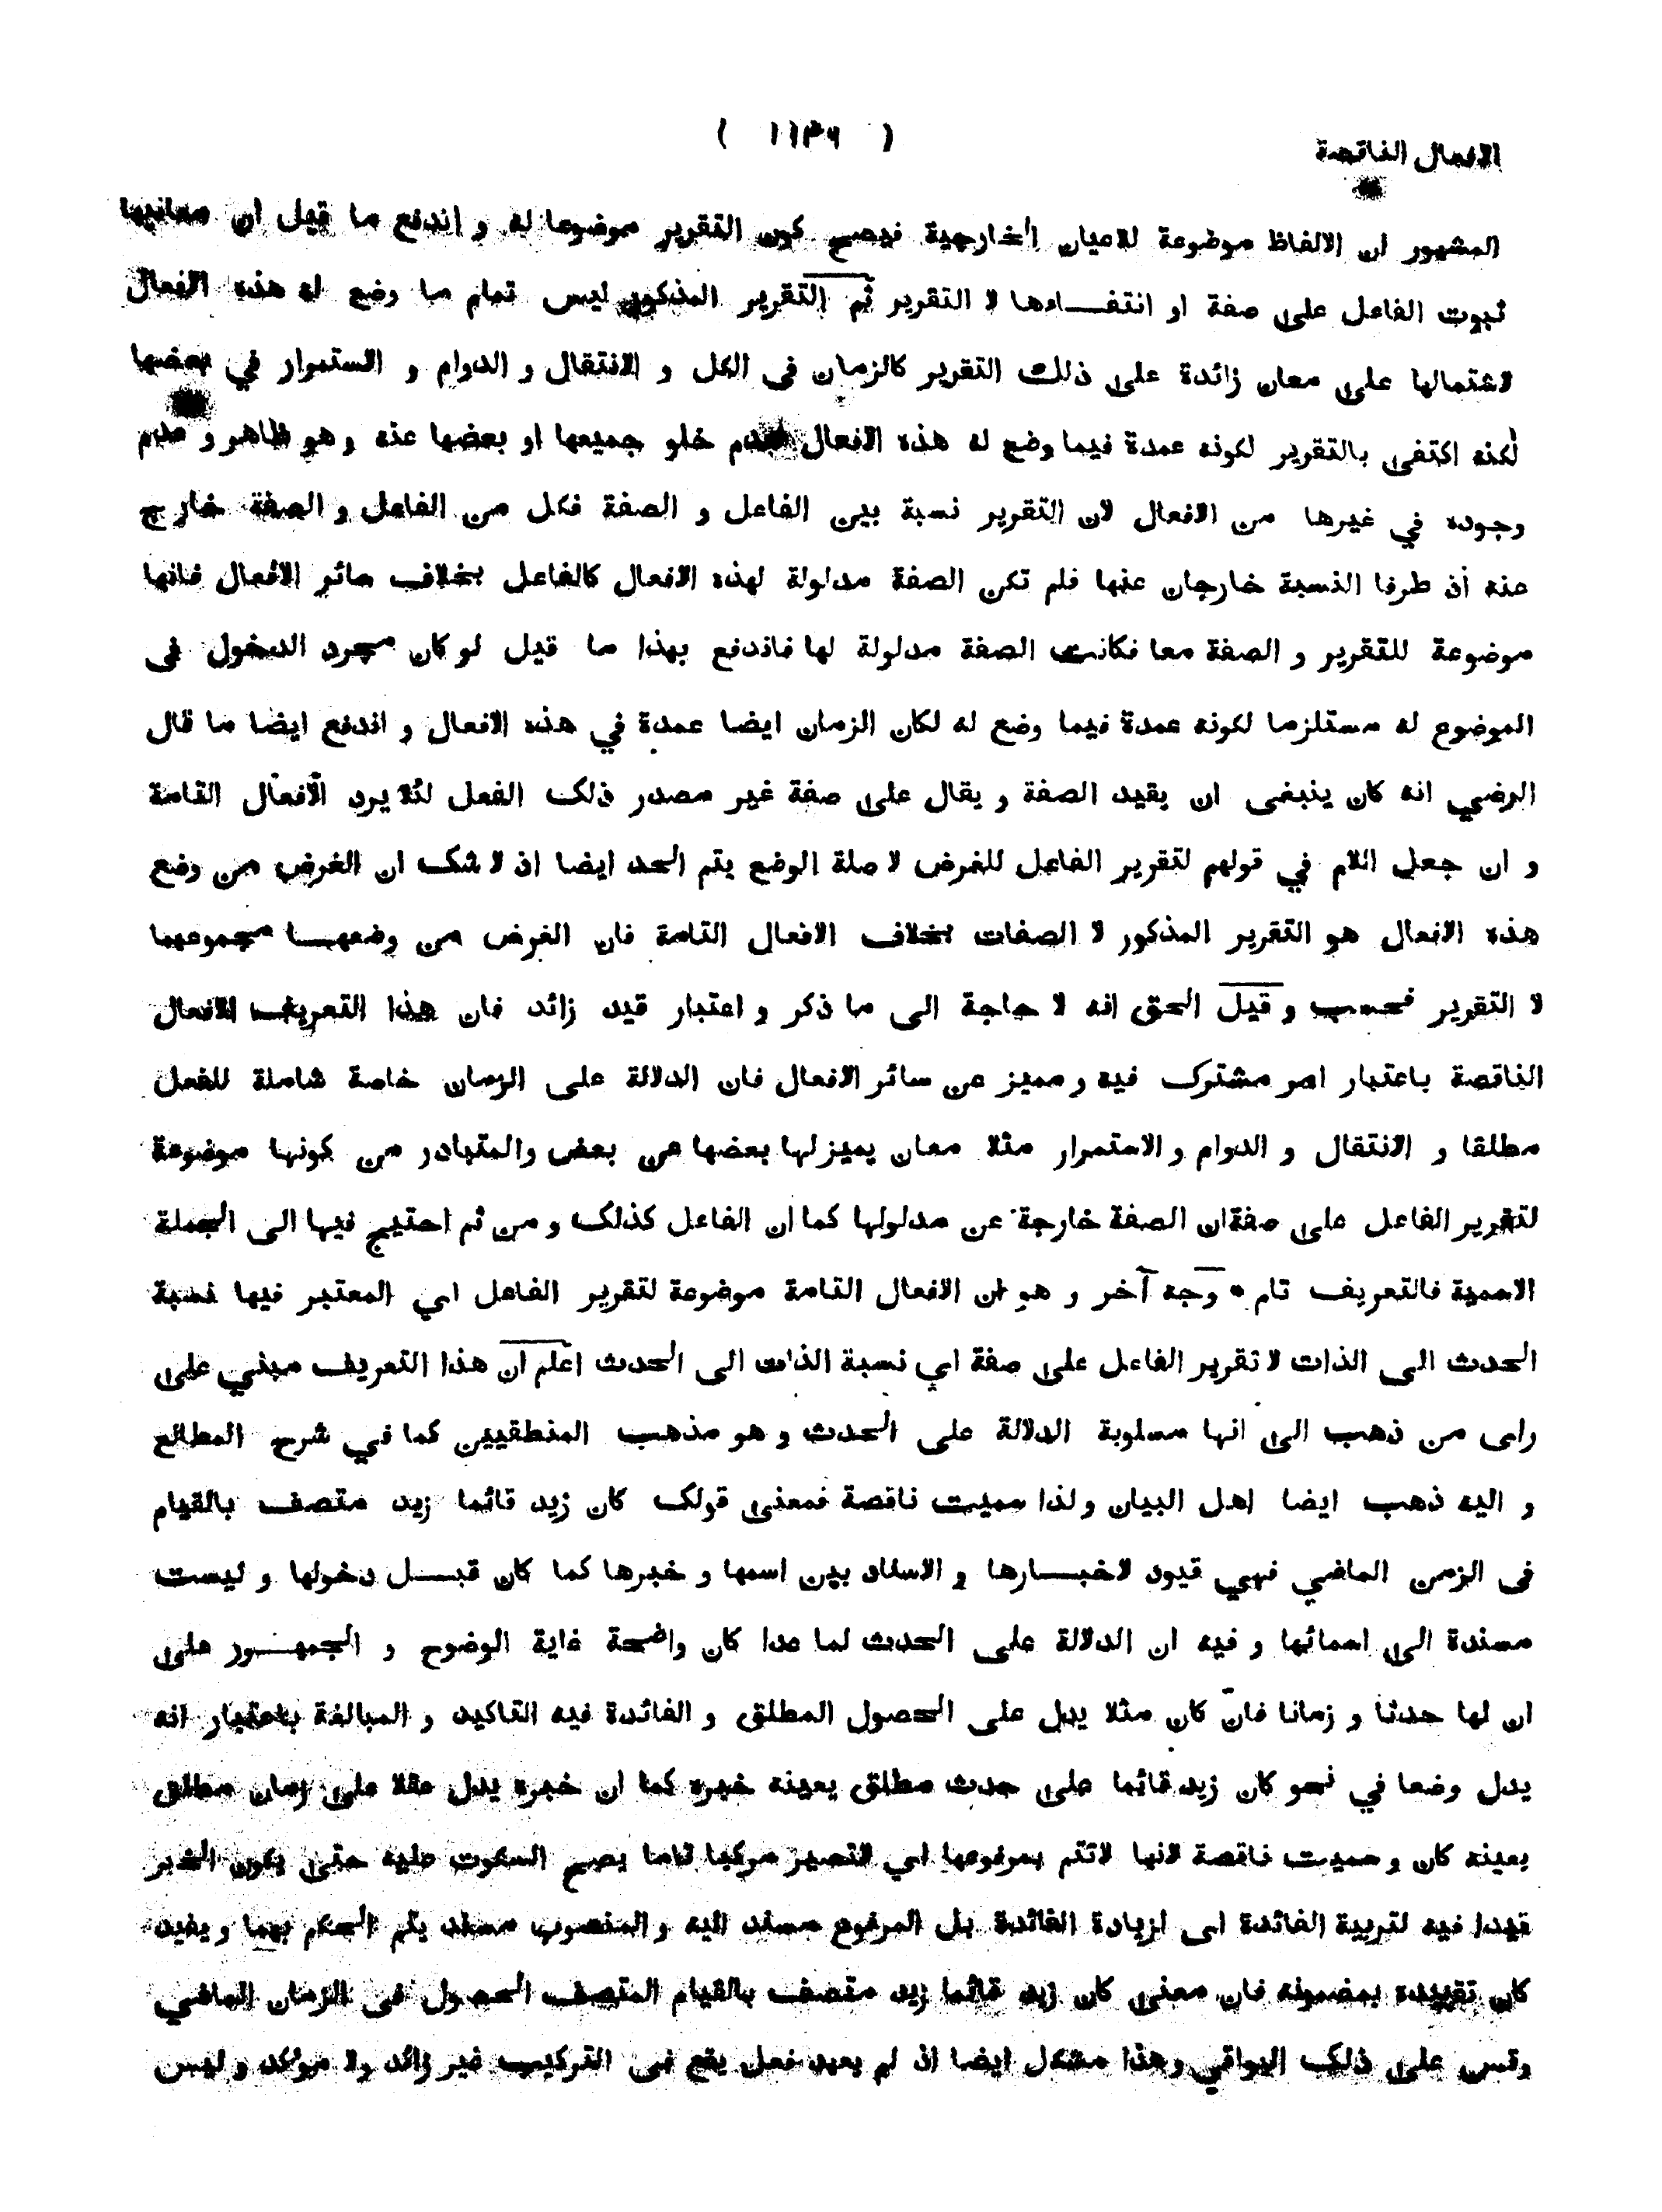 الافعال الناقصة
( ١١٣٦ )
المشهور ان الالفاظ موضوعة للاعيان الخارجية فيصح كون التقرير موضوعا له و اندفع ما قيل ان معانيها
ثبوت الفاعل على صفة او انتفـــاءها لا التقرير ثم التقرير المذكور ليس تمام ما وضع له هذه الافعال
لاشتمالها على معان زائدة على ذلك التقرير كالزمان فى الكل و الانتقال و الدوام و الاستمرار في بعضها
لكنه اكتفى بالتقرير لكونه عمدة فيما وضع له هذه الافعال لعدم خلو جميعها او بعضها عنه و هو ظاهر و عدم
وجوده في غيرها من الافعال لان التقرير نسبة بين الفاعل و الصفة فكل من الفاعل و الصفة خارج
عنه اذ طرفا النسبة خارجان عنها فلم تكن الصفة مدلولة لهذه الافعال كالفاعل بخلاف سائر الافعال فانها
موضوعة للتقرير و الصفة معا فكانت الصفة مدلولة لها فاندفع بهذا ما قيل لو كان مجرد الدخول فى
الموضوع له مستلزما لكونه عمدة فيما وضع له لكان الزمان ايضا عمدة في هذه الافعال و اندفع ايضا ما قال
الرضي انه كان ينبغى ان يقيد الصفة و يقال على صفة غير مصدر ذلك الفعل لئلا يرد الافعال التامة
و ان جعل اللام في قولهم لتقرير الفاعل للغرض لا صلة الوضع يتم الحد ايضا اذ لا شك ان الغرض من وضع
هذه الافعال هو التقرير المذكور لا الصفات بخلاف الافعال التامة فان الغرض من وضعهـــا مجموعهما
لا التقرير فحسب و قيل الحق انه لا حاجة الى ما ذكر و اعتبار قيد زائد فان هذا التعريف للافعال
الناقصة باعتبار امر مشترك فيه و مميز عن سائر الافعال فان الدلالة على الزمان خاصة شاملة للفعل
مطلقا و الانتقال و الدوام و الاستمرار مثلا معان يميز لها بعضها عن بعض والمتبادر من كونها موضوعة
لتقرير الفاعل على صفة ان الصفة خارجة عن مدلولها كما ان الفاعل كذلك و من ثم احتيج فيها الى الجملة
الاسمية فالتعريف تام * وجه آخر و هو ان الافعال التامة موضوعة لتقرير الفاعل اي المعتبر فيها نسبة
الحدث الى الذات لا تقرير الفاعل على صفة اي نسبة الذات الى الحدث اعلم ان هذا التعريف مبني على
راى من ذهب الى انها مسلوبة الدلالة على الحدث و هو مذهب المنطقيين كما في شرح المطالع
و اليه ذهب ايضا اهل البيان و لذا سميت ناقصة فمعنى قولك كان زيد قائما زيد متصف بالقيام
فى الزمن الماضي فهي قيود لاخبـــارها و الاسناد بين اسمها و خبرها كما كان قبـــل دخولها و ليست
مسندة الى اسمائها و فيه ان الدلالة على الحدث لما عدا كان واضحة غاية الوضوح و الجمهـــور على
ان لها حدثا و زمانا فان كان مثلا يدل على الحصول المطلق و الفائدة فيه التاكيد و المبالغة باعتبار انه
يدل وضعا في نحو كان زيد قائما على حدث مطلق يعينه خبره كما ان خبره يدل عقلا على زمان مطلق
يعينه كان و سميت ناقصة لانها لاتتم بمرفوعها اي لاتصير مركبا تاما يصح السكوت عليه حتى يكون الخبر
قيدا فيه لتربية الفائدة اى لزيادة الفائدة بل المرفوع مسند اليه و المنصوب مسند يتم الحكم بهما و يفيد
كان تقييده بمضمونه فان معنى كان زيد قائما زيد متصف بالقيام المتصف الحصول فى الزمان الماضي
وقس على ذلك البواقي و هذا مشكل ايضا اذ لم يعهد فعل يقع فى التركيب غير زائد ولا مؤكد و ليس